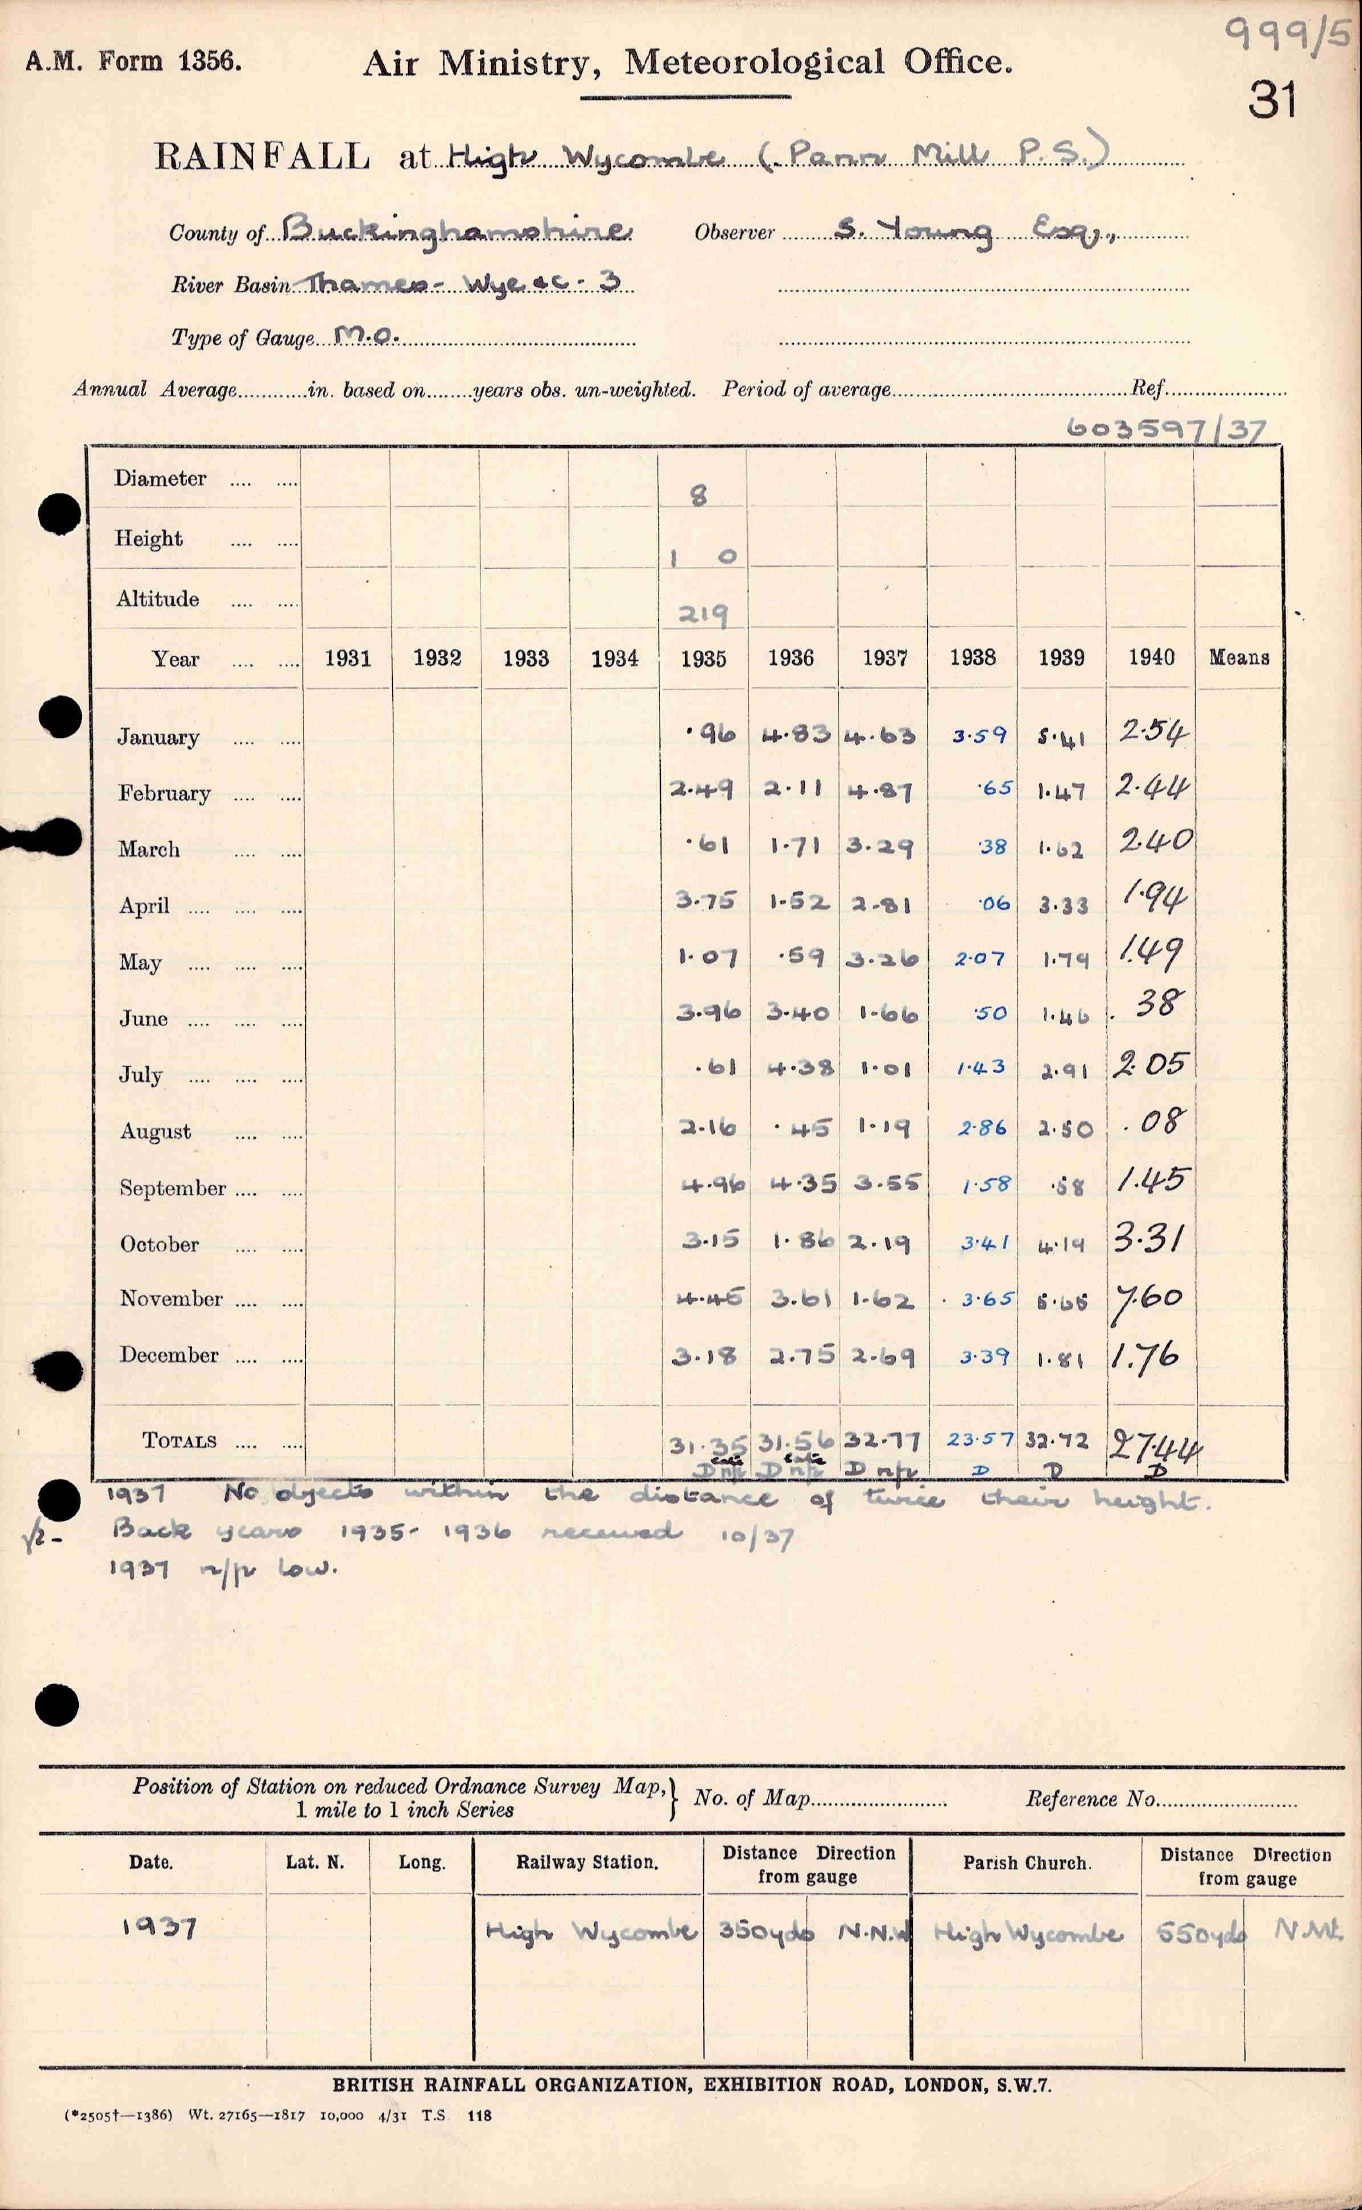 999/5
A.M. Form 1356. Air Ministry, Meteorological Office.
31
RAINFALL at High Wycombe (Pann Mill P.S.)
County of Buckinghamshire Observer S. Young Esq.,
River Basin Thames - Wye &c - 3
Type of Gauge M.O.
Annual Average in. based on years obs. un-weighted. Period of average Ref.
603597/37
Diameter 8
Height 1 0
Altitude 219
Year 1931 1932 1933 1934 1935 1936 1937 1938 1939 1940 Means
January .96 4.83 4.63 3.59 5.41 2.54
February 2.49 2.11 4.87 .65 1.47 2.44
March .61 1.71 3.29 .38 1.62 2.40
April 3.75 1.52 2.81 .06 3.33 1.94
May 1.07 .59 3.26 2.07 1.79 1.49
June 3.96 3.40 1.66 .50 1.46 .38
July .61 4.38 1.01 1.43 2.91 2.05
August 2.16 .45 1.19 2.86 2.50 .08
September 4.96 4.35 3.55 1.58 .58 1.45
October 3.15 1.86 2.19 3.41 4.19 3.31
November 4.45 3.61 1.62 3.65 5.65 7.60
December 3.18 2.75 2.69 3.39 1.81 1.76
TOTALS 31.35 31.56 32.77 23.57 32.72 27.44
D n/p D n/p D n/p D D D
1937 No objects within the distance of twice their height.
Back years 1935-1936 received 10/37
1937 n/p low.
Position of Station on reduced Ordnance Survey Map,} No. of Map Reference No.
1 mile to 1 inch Series
Date. Lat. N. Long. Railway Station. Distance Direction from gauge Parish Church. Distance Direction from gauge
1937 High Wycombe 350yds N.N.W High Wycombe 550yds
BRITISH RAINFALL ORGANIZATION, EXHIBITION ROAD, LONDON, S.W.7.
(*2505†—1386) Wt. 27165—1817 10,000 4/31 T.S. 118